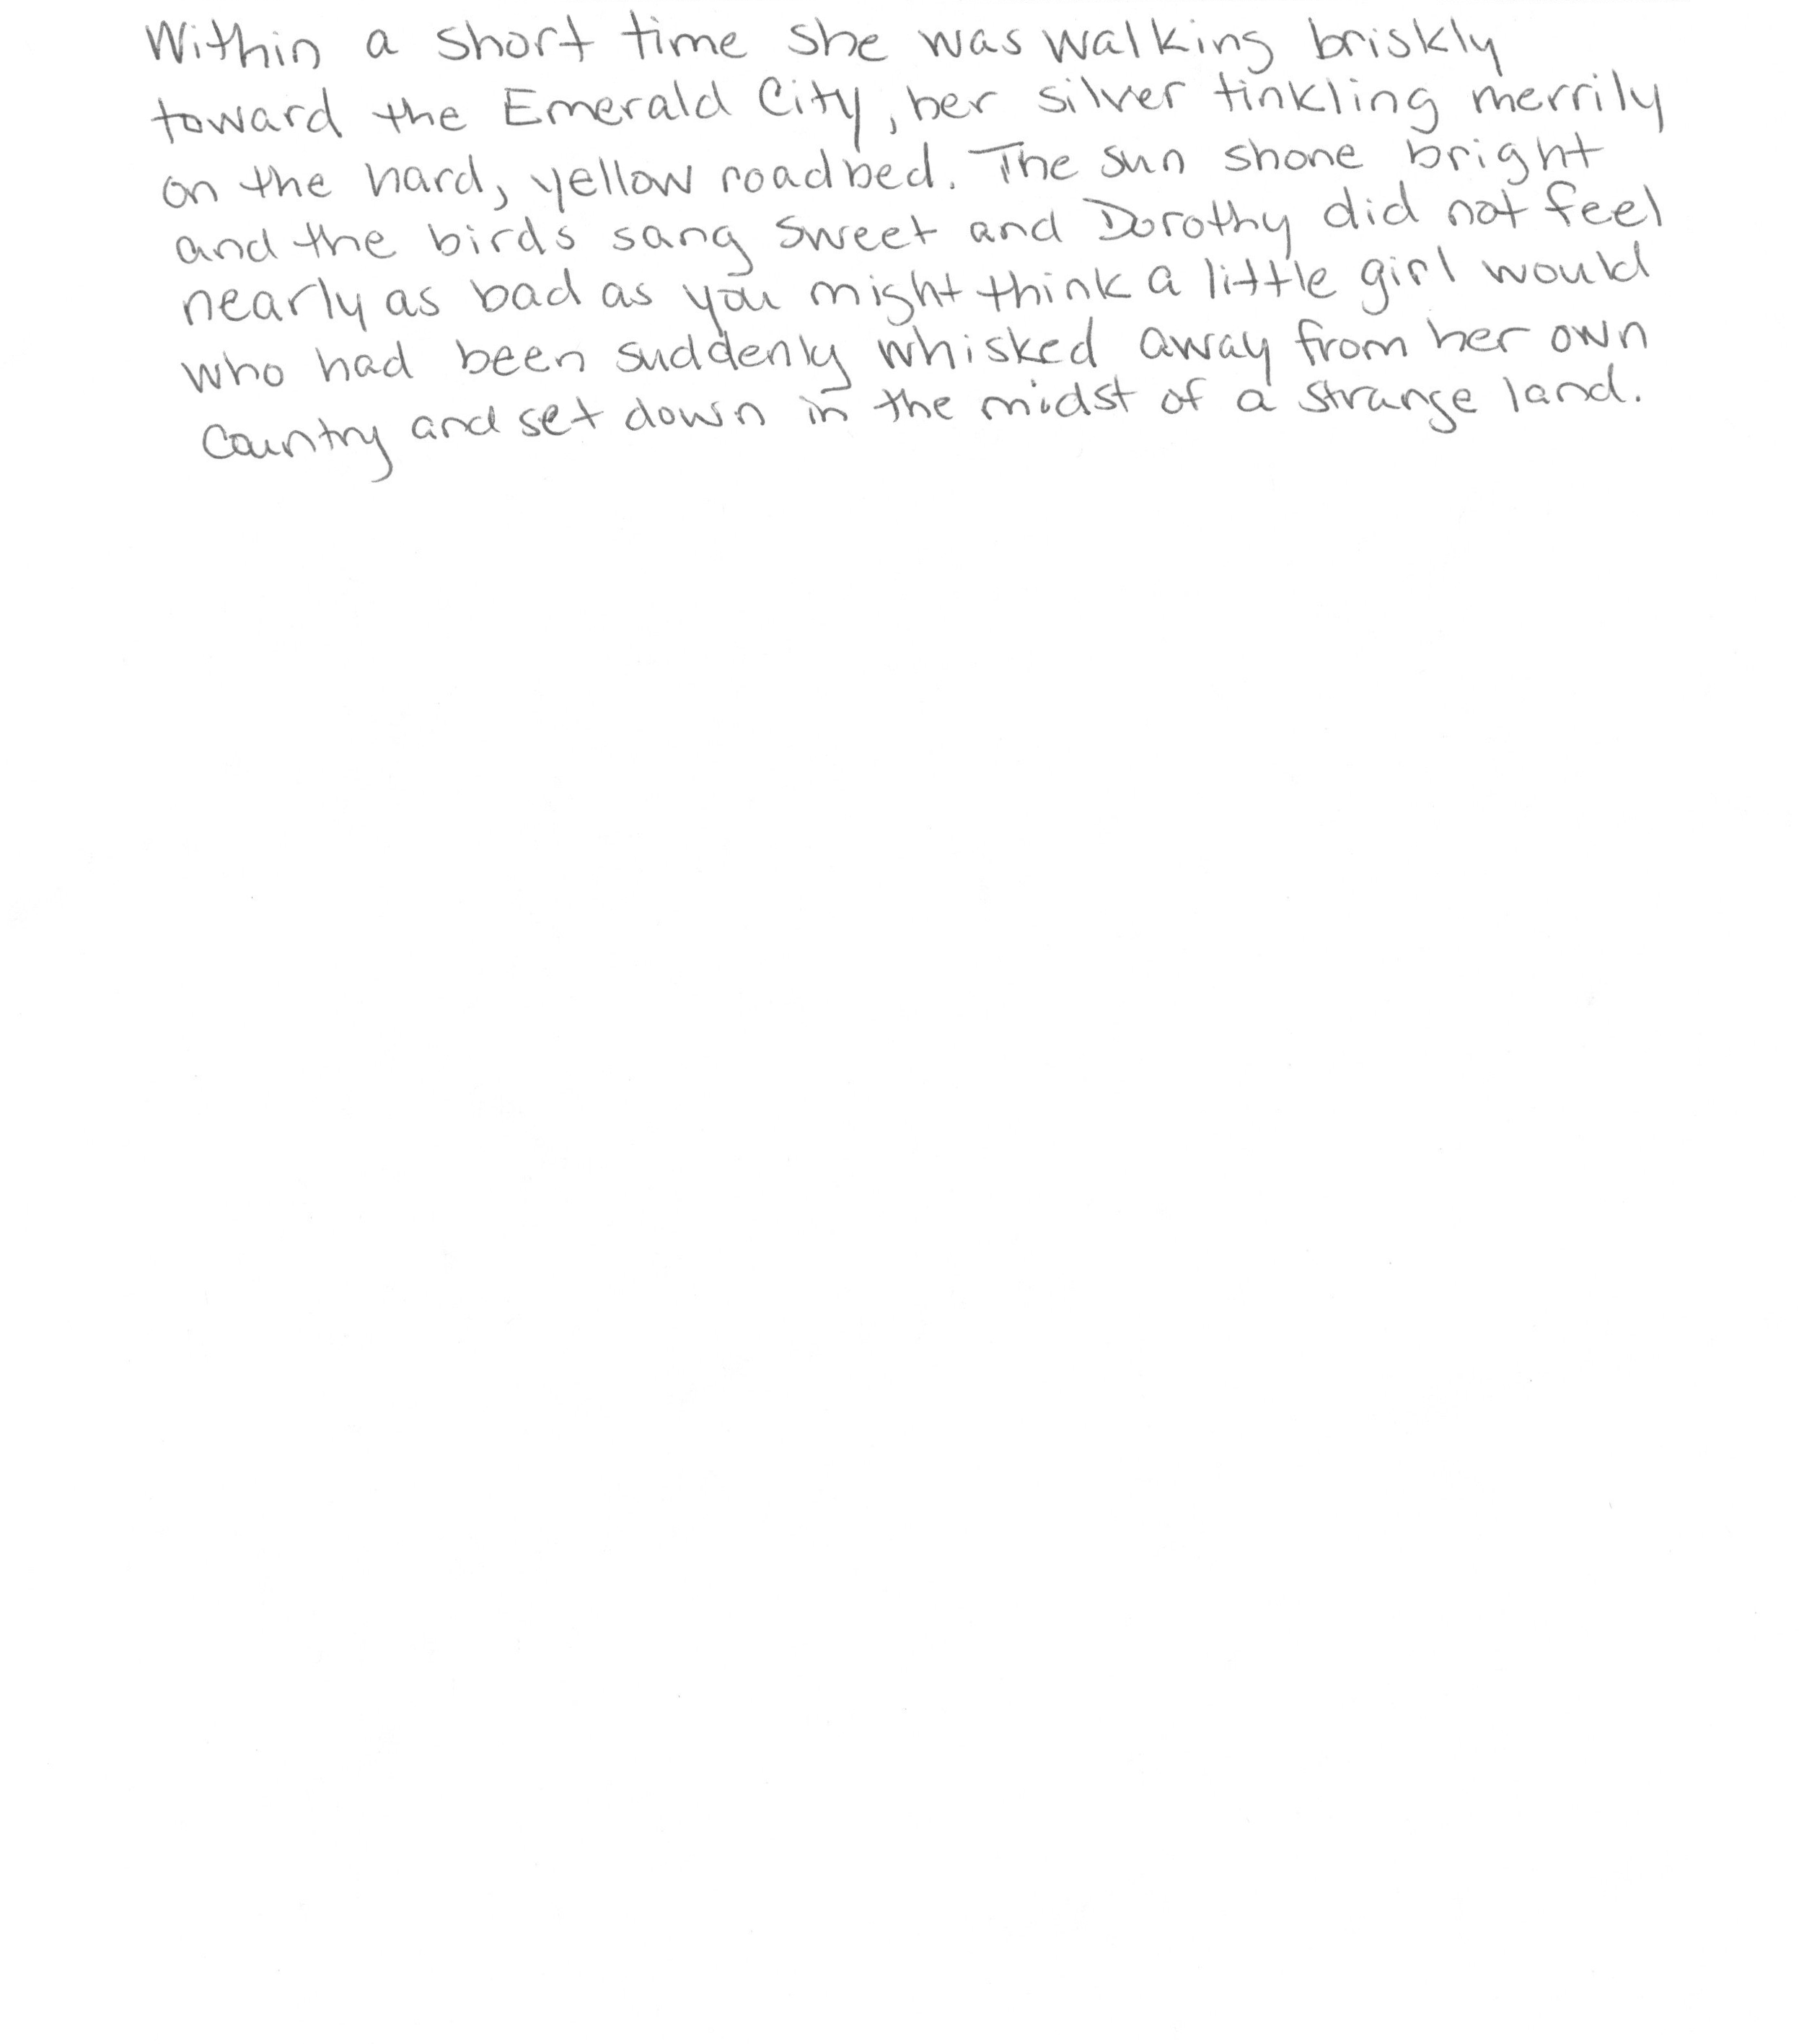 Within a short time she was walking briskly
toward the Emerald City, her silver tinkling merrily
on the hard, yellow roadbed. The sun shone bright
and the birds sang sweet and Dorothy did not feel
nearly as bad as you might think a little girl would
who had been suddenly whisked away from her own
country and set down in the midst of a strange land.